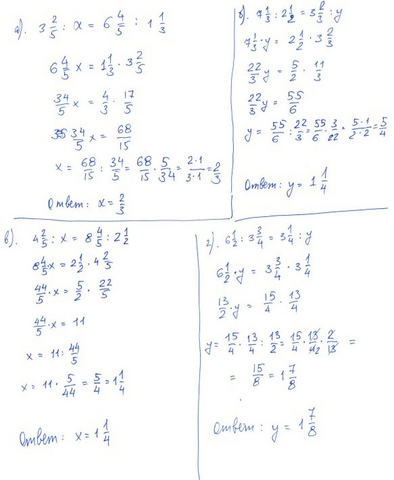 а). 3 2/5 : x = 6 4/5 : 1 1/3
6 4/5 x = 1 1/3 · 3 2/5
34/5 x = 4/3 · 17/5
34/5 x = 68/15
x = 68/15 : 34/5 = 68/15 · 5/34 = 2·1/3·1 = 2/3
Ответ: x = 2/3
б). 7 1/3 : 2 1/2 = 3 2/3 : y
7 1/3 · y = 2 1/2 · 3 2/3
22/3 y = 5/2 · 11/3
22/3 y = 55/6
y = 55/6 : 22/3 = 55/6 · 3/22 = 5·1/2·2 = 5/4
Ответ: y = 1 1/4
в). 4 2/5 : x = 8 4/5 : 2 1/2
8 4/5 x = 2 1/2 · 4 2/5
44/5 · x = 5/2 · 22/5
44/5 · x = 11
x = 11 : 44/5
x = 11 · 5/44 = 5/4 = 1 1/4
Ответ: x = 1 1/4
г). 6 1/2 : 3 3/4 = 3 1/4 : y
6 1/2 · y = 3 3/4 · 3 1/4
13/2 · y = 15/4 · 13/4
y = 15/4 · 13/4 : 13/2 = 15/4 · 13/42 · 2/13 =
= 15/8 = 1 7/8
Ответ: y = 1 7/8